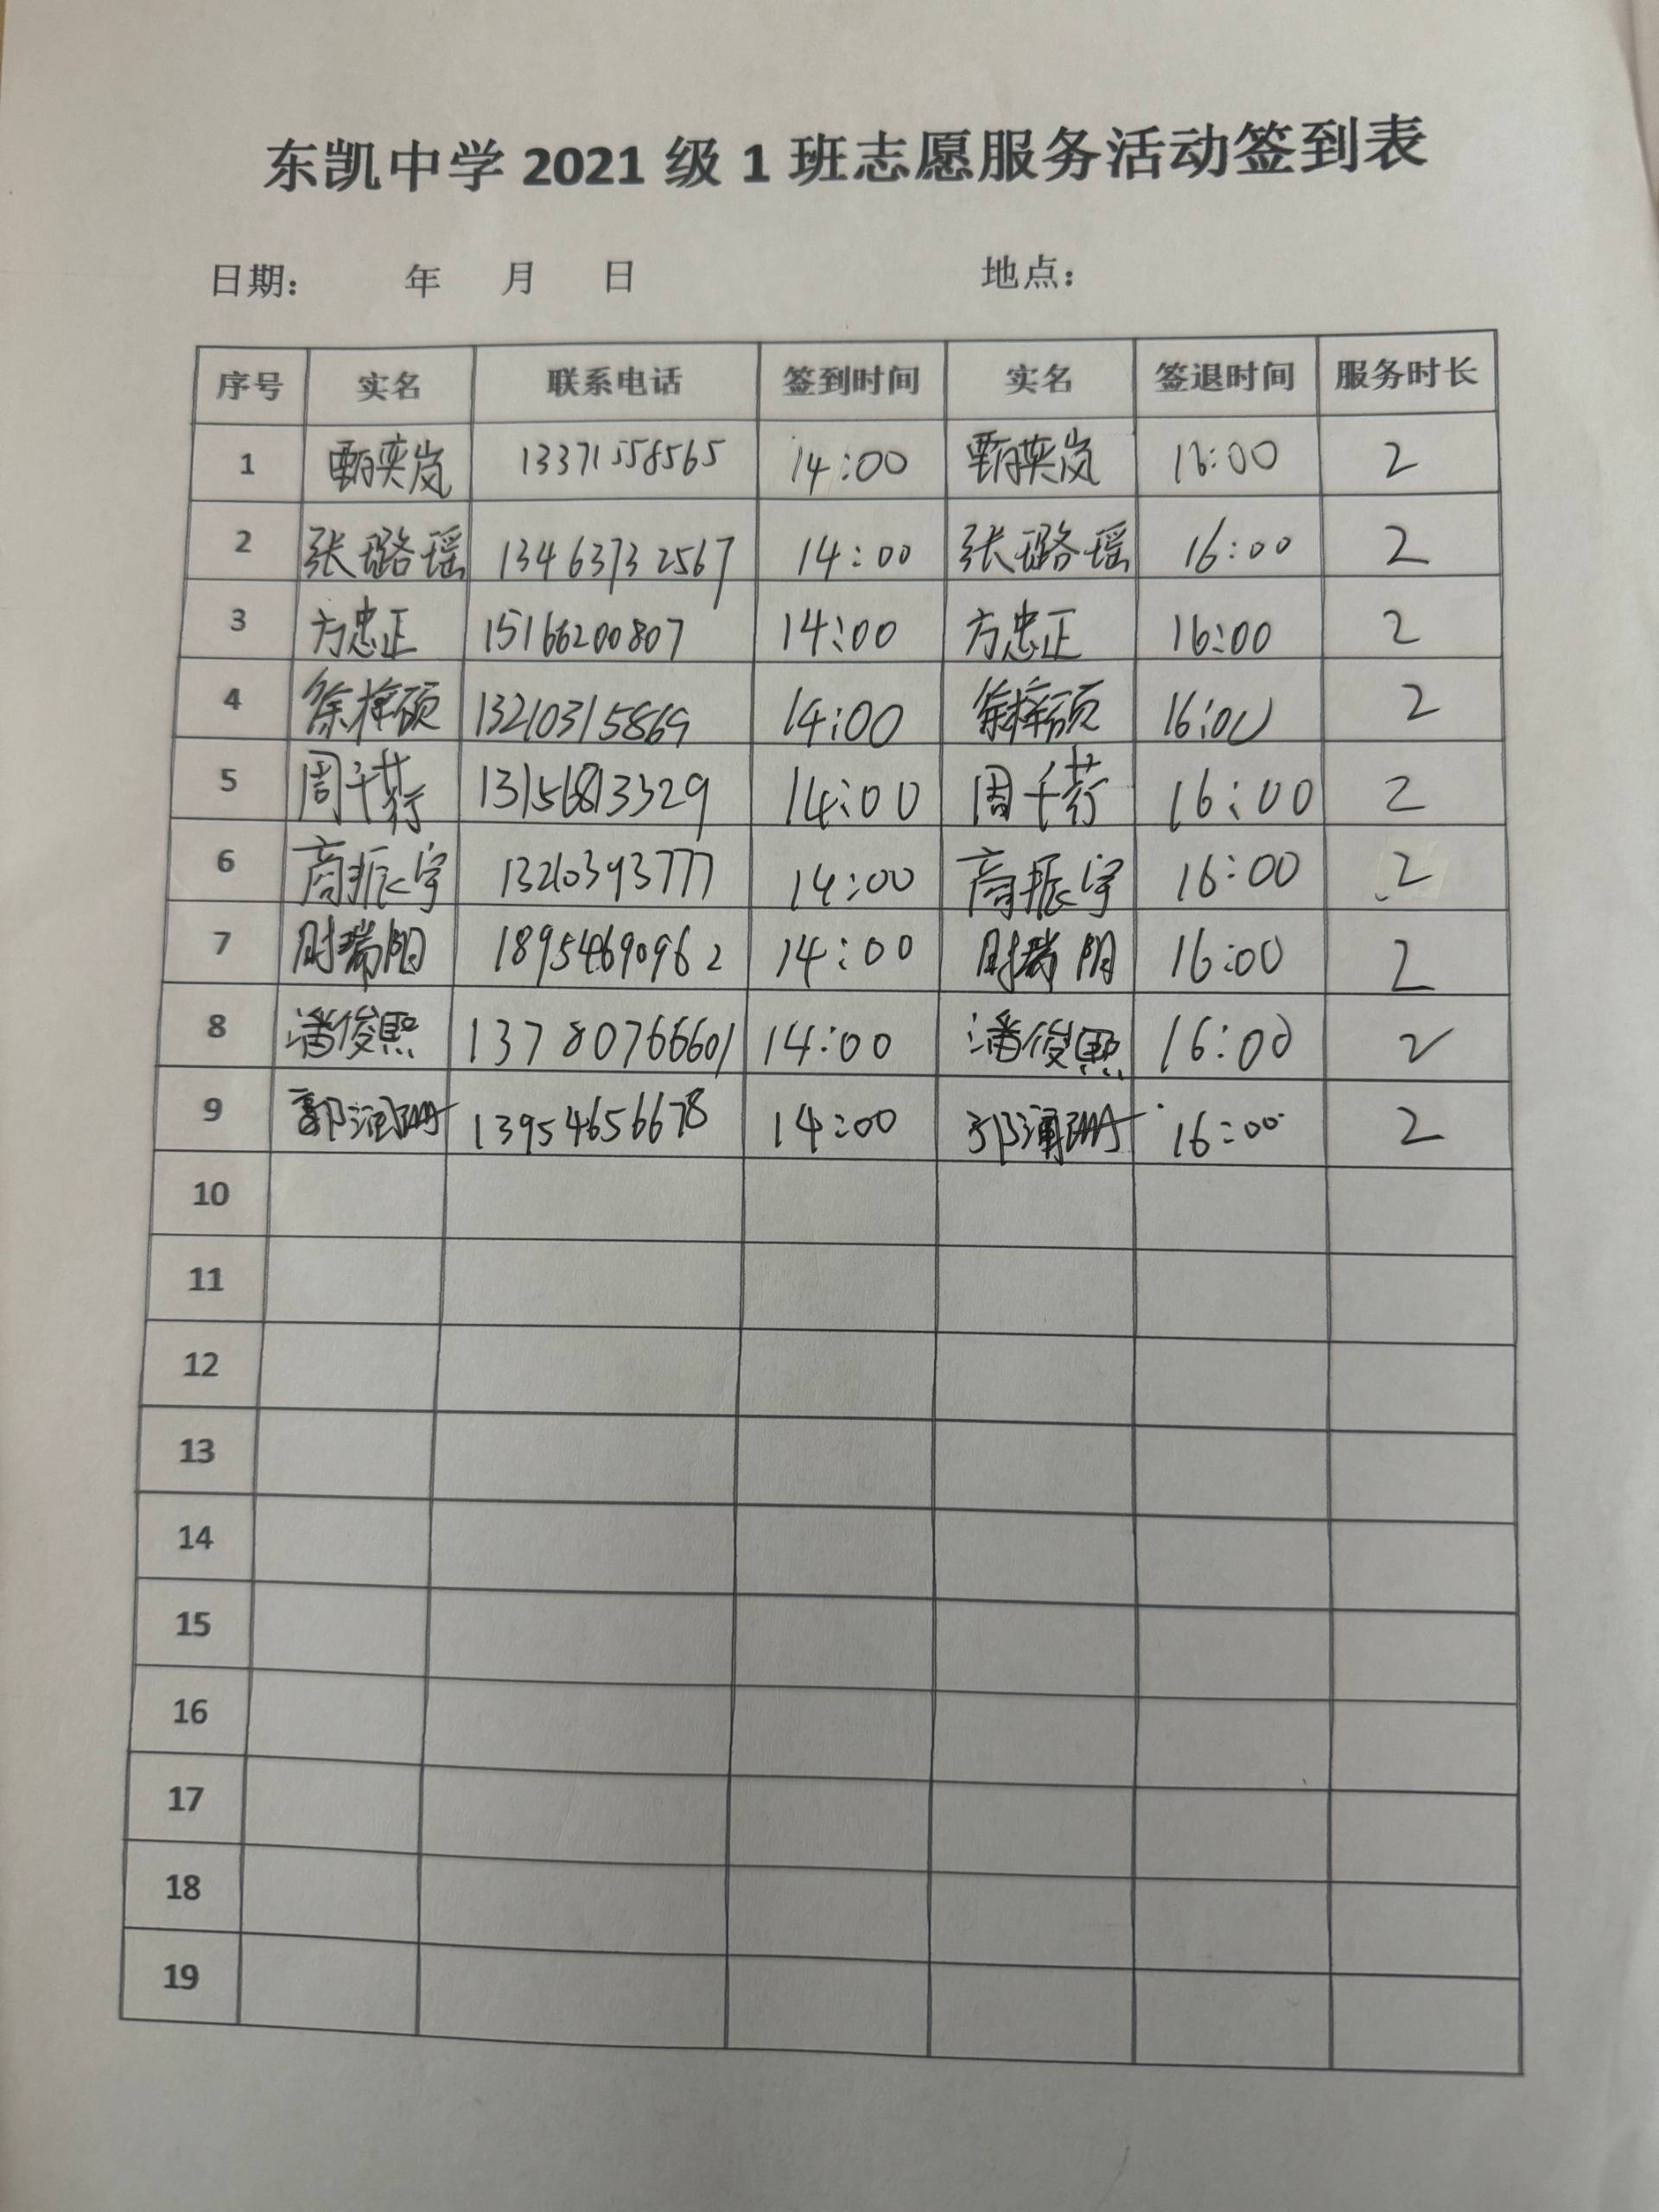 东凯中学 2021 级 1 班志愿服务活动签到表
日期： 年 月 日 地点：
序号 实名 联系电话 签到时间 实名 签退时间 服务时长
1 甄奕岚 13371558565 14:00 甄英岚 16:00 2
2 张璐瑶 13463732567 14:00 张璐瑶 16:00 2
3 方忠正 15166200807 14:00 方忠正 16:00 2
4 徐梓硕 13210315869 14:00 徐梓硕 16:00 2
5 周千荇 13156813329 14:00 周千荇 16:00 2
6 商振宇 13210393777 14:00 商振宇 16:00 2
7 14:00 16:00 2
8 潘俊熙 13780766601 14:00 潘俊熙 16:00 2
9 郭润珊 13954656678 14:00 郭润珊 16:00 2
10
11
12
13
14
15
16
17
18
19